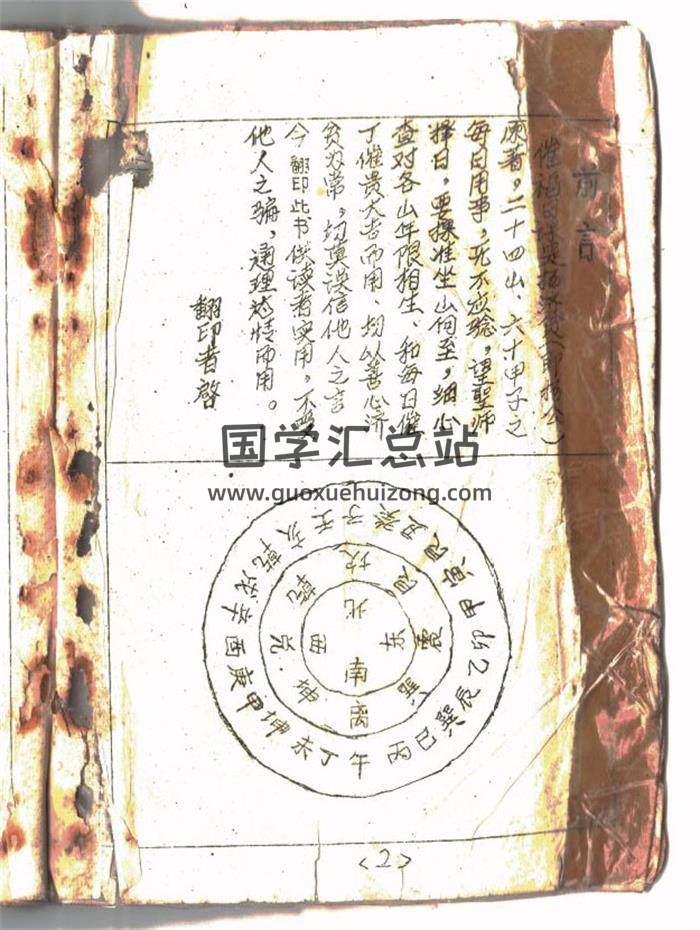 前言
催福日
原著，二十四山、六十甲子之
每日用事，无不应验，望圣师
择日，要操准坐山何至，细心
查对各山年限相生、和每日催
丁催贵大吉而用，均以善心济
贫为常，切莫误信他人之言
今翻印此书供读者实用，不受
他人之骗，通理达情而用。
翻印者启
国学汇总站
www.guoxuehuizong.com
壬子癸丑艮寅甲卯乙辰巽巳丙午丁未坤甲庚酉辛戌乾亥
坎艮震巽离坤兑乾
北东南西
<2>